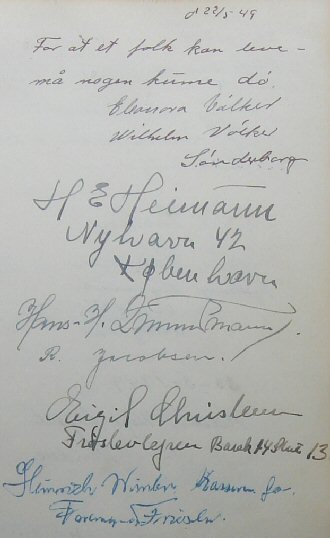 d 22/5-49
For at et folk kan leve -
må nogen kunne dö.
Eleonora Völker
Wilhelm Völker
Sönderborg
H E Heimann
Nyhavn 42
København
Hans-H.
R. Jacobsen.
Eigil Christensen
Frøslevlejren Barak 14 Stue 13
Heinrich